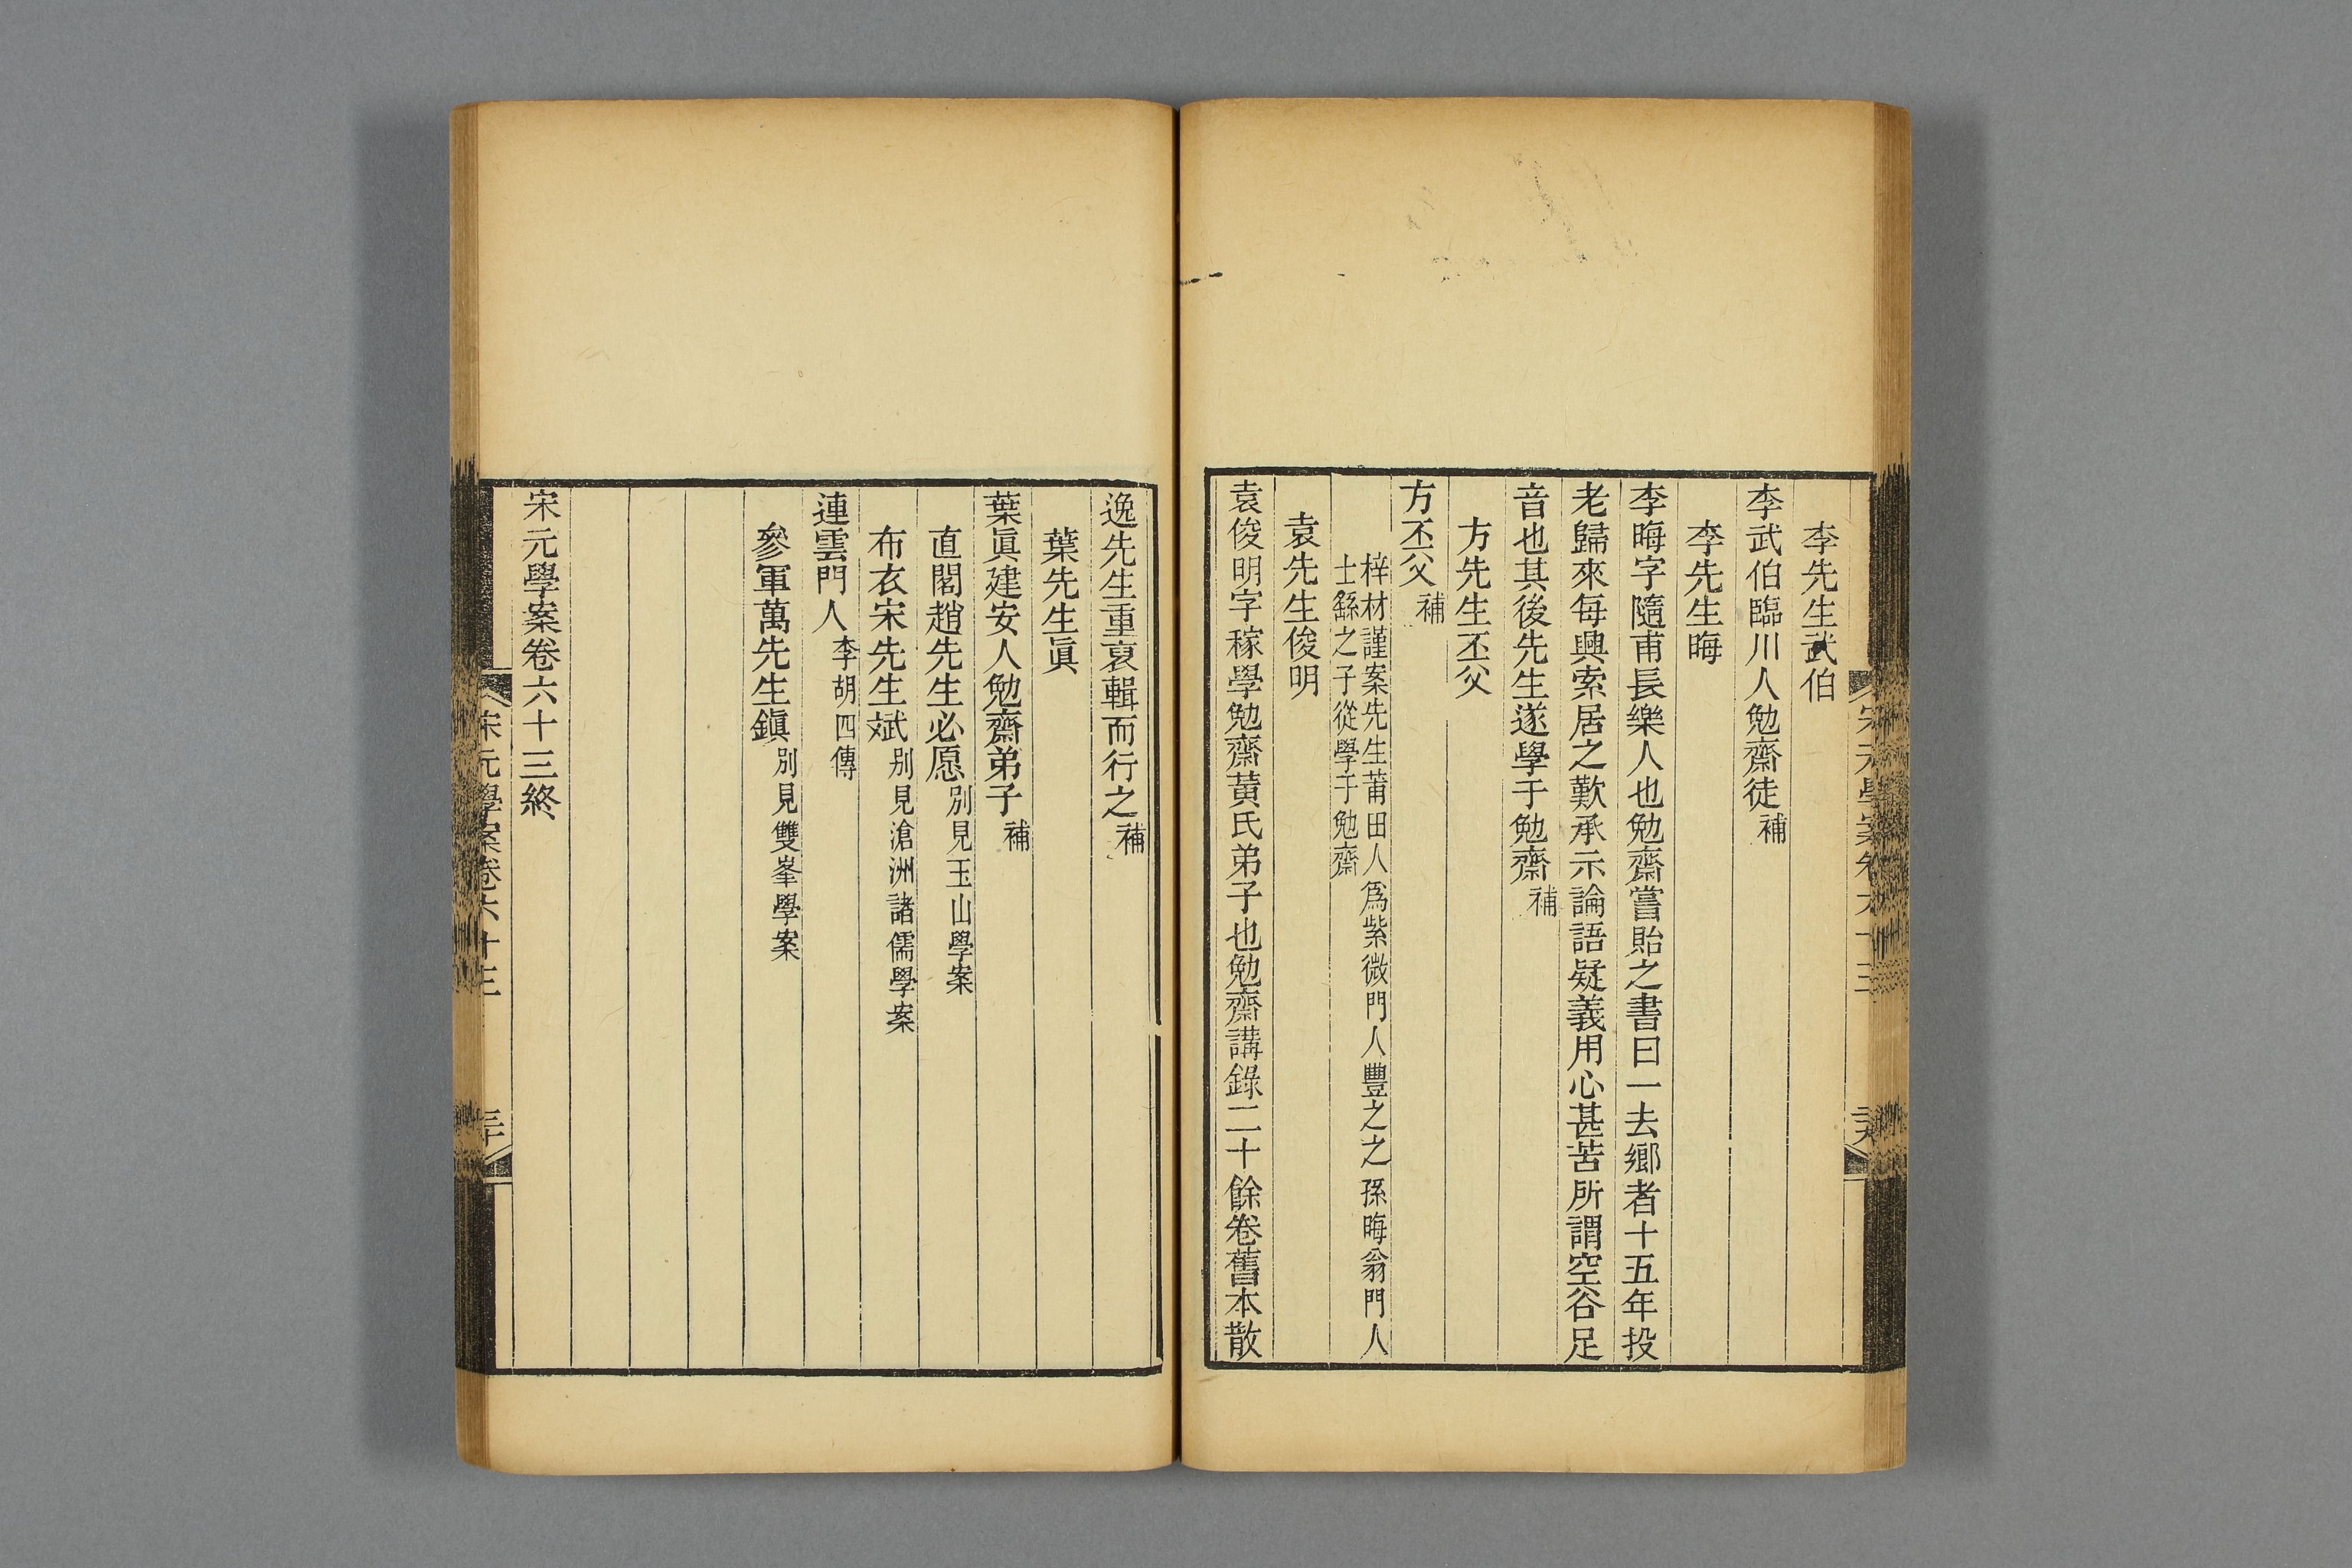 李先生武伯
李武伯臨川人勉齋徒補
李先生晦
李晦字隨甫長樂人也勉齋嘗貽之書曰一去鄉者十五年投
老歸來每興索居之歎承示論語疑義用心甚苦所謂空谷足
音也其後先生遂學于勉齋補
方先生丕父
方丕父補
梓材謹案先生莆田人爲紫微門人豐之之孫晦翁門人
士繇之子從學于勉齋
袁先生俊明
袁俊明字稼學勉齋黃氏弟子也勉齋講錄二十餘卷舊本散
逸先生重裒輯而行之補
葉先生眞
葉眞建安人勉齋弟子補
直閣趙先生必愿別見玉山學案
布衣宋先生斌別見滄洲諸儒學案
連雲門人李胡四傳
參軍萬先生鎭別見雙峯學案
宋元學案卷六十三終
宋元學案卷六十三
三十